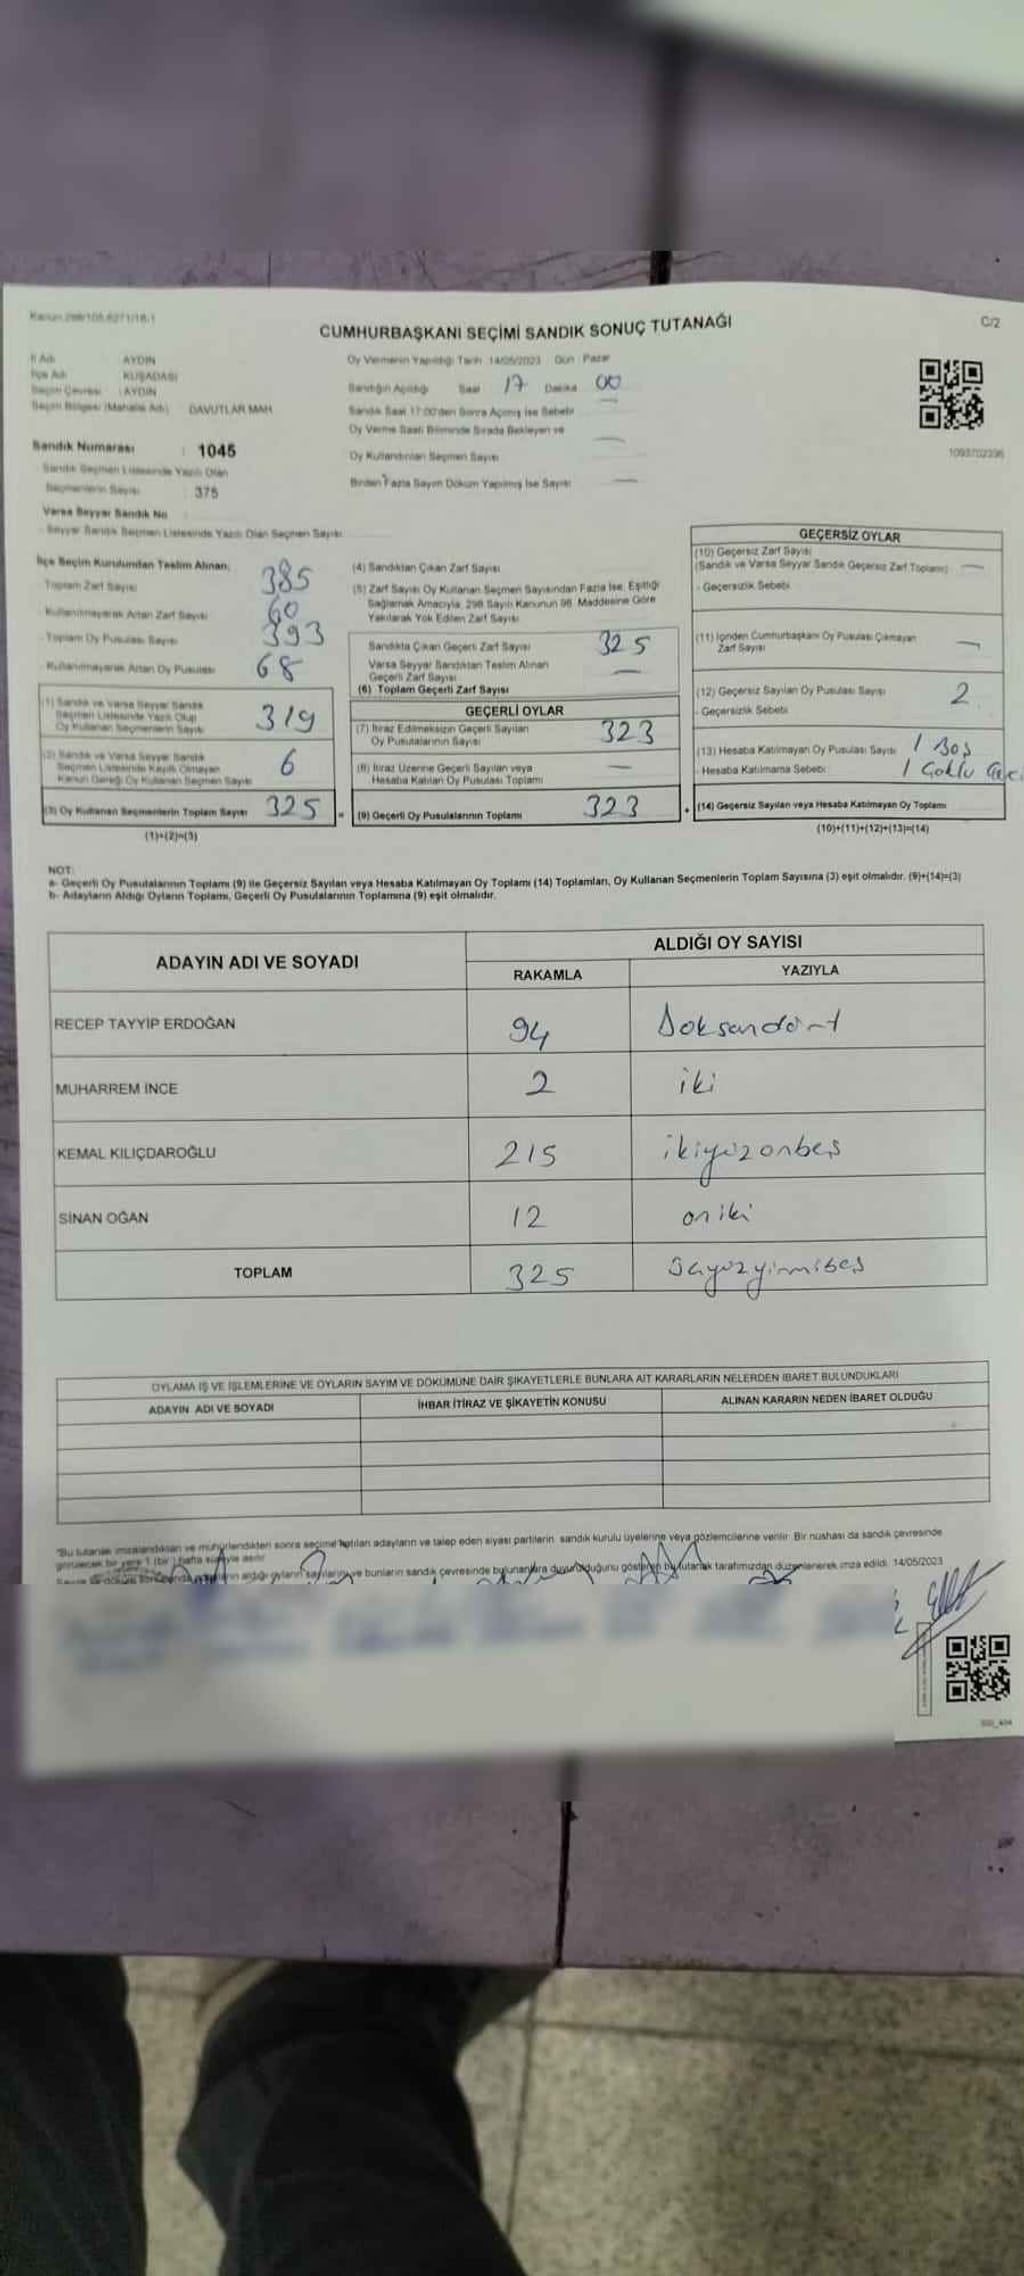 Kanun 298/105,6271/18-1
CUMHURBAŞKANI SEÇİMİ SANDIK SONUÇ TUTANAĞI
C/2
İl Adı AYDIN
İlçe Adı KUŞADASI
Seçim Çevresi : AYDIN
Seçim Bölgesi (Mahalle Adı) DAVUTLAR MAH
Sandık Numarası : 1045
Sandık Seçmen Listesinde Yazılı Olan
Seçmenlerin Sayısı : 375
Varsa Seyyar Sandık No
- Seyyar Sandık Seçmen Listesinde Yazılı Olan Seçmen Sayısı
Oy Vermenin Yapıldığı Tarih 14/05/2023 Gün : Pazar
Sandığın Açıldığı Saat 17 Dakika 00
Sandık Saat 17:00'den Sonra Açılmış İse Sebebi
Oy Verme Saati Bitiminde Sırada Bekleyen ve
Oy Kullandırılan Seçmen Sayısı
Birden Fazla Sayım Döküm Yapılmış İse Sayısı
1093702336
İlçe Seçim Kurulundan Teslim Alınan;
Toplam Zarf Sayısı 385
- Kullanılmayarak Artan Zarf Sayısı 60
- Toplam Oy Pusulası Sayısı 393
- Kullanılmayarak Artan Oy Pusulası 68
(1) Sandık ve Varsa Seyyar Sandık
Seçmen Listesinde Yazılı Olup
Oy Kullanan Seçmenlerin Sayısı 319
(2) Sandık ve Varsa Seyyar Sandık
Seçmen Listesinde Kayıtlı Olmayan
Kanun Gereği Oy Kullanan Seçmen Sayısı 6
(3) Oy Kullanan Seçmenlerin Toplam Sayısı 325
(1)+(2)=(3)
(4) Sandıktan Çıkan Zarf Sayısı
(5) Zarf Sayısı Oy Kullanan Seçmen Sayısından Fazla İse, Eşitliği
Sağlamak Amacıyla, 298 Sayılı Kanunun 98. Maddesine Göre
Yakılarak Yok Edilen Zarf Sayısı
Sandıkta Çıkan Geçerli Zarf Sayısı 325
Varsa Seyyar Sandıktan Teslim Alınan
Geçerli Zarf Sayısı —
(6) Toplam Geçerli Zarf Sayısı
GEÇERLİ OYLAR
(7) İtiraz Edilmeksizin Geçerli Sayılan
Oy Pusulalarının Sayısı 323
(8) İtiraz Üzerine Geçerli Sayılan veya
Hesaba Katılan Oy Pusulası Toplamı —
= (9) Geçerli Oy Pusulalarının Toplamı 323
GEÇERSİZ OYLAR
(10) Geçersiz Zarf Sayısı
(Sandık ve Varsa Seyyar Sandık Geçersiz Zarf Toplamı) —
- Geçersizlik Sebebi
(11) İçinden Cumhurbaşkanı Oy Pusulası Çıkmayan
Zarf Sayısı —
(12) Geçersiz Sayılan Oy Pusulası Sayısı 2
- Geçersizlik Sebebi
(13) Hesaba Katılmayan Oy Pusulası Sayısı 1 Boş
- Hesaba Katılmama Sebebi 1 Çoklu
+ (14) Geçersiz Sayılan veya Hesaba Katılmayan Oy Toplamı
(10)+(11)+(12)+(13)=(14)
NOT:
a- Geçerli Oy Pusulalarının Toplamı (9) ile Geçersiz Sayılan veya Hesaba Katılmayan Oy Toplamı (14) Toplamları, Oy Kullanan Seçmenlerin Toplam Sayısına (3) eşit olmalıdır. (9)+(14)=(3)
b- Adayların Aldığı Oyların Toplamı, Geçerli Oy Pusulalarının Toplamına (9) eşit olmalıdır.
ADAYIN ADI VE SOYADI ALDIĞI OY SAYISI
RAKAMLA YAZIYLA
RECEP TAYYİP ERDOĞAN 94 Doksandört
MUHARREM İNCE 2 iki
KEMAL KILIÇDAROĞLU 215 ikiyüzonbeş
SİNAN OĞAN 12 oniki
TOPLAM 325
OYLAMA İŞ VE İŞLEMLERİNE VE OYLARIN SAYIM VE DÖKÜMÜNE DAİR ŞİKAYETLERLE BUNLARA AİT KARARLARIN NELERDEN İBARET BULUNDUKLARI
ADAYIN ADI VE SOYADI İHBAR İTİRAZ VE ŞİKAYETİN KONUSU ALINAN KARARIN NEDEN İBARET OLDUĞU
*Bu tutanak imzalandıktan ve mühürlendikten sonra seçime katılan adayların ve talep eden siyasi partilerin, sandık kurulu üyelerine veya gözlemcilerine verilir. Bir nüshası da sandık çevresinde
görülecek bir yere 1 (bir) hafta süreyle asılır
aldığı oyların sayılarını ve bunların sandık çevresinde bulunanlara duyurulduğunu gösteren bu tutanak tarafımızdan düzenlenerek imza edildi. 14/05/2023